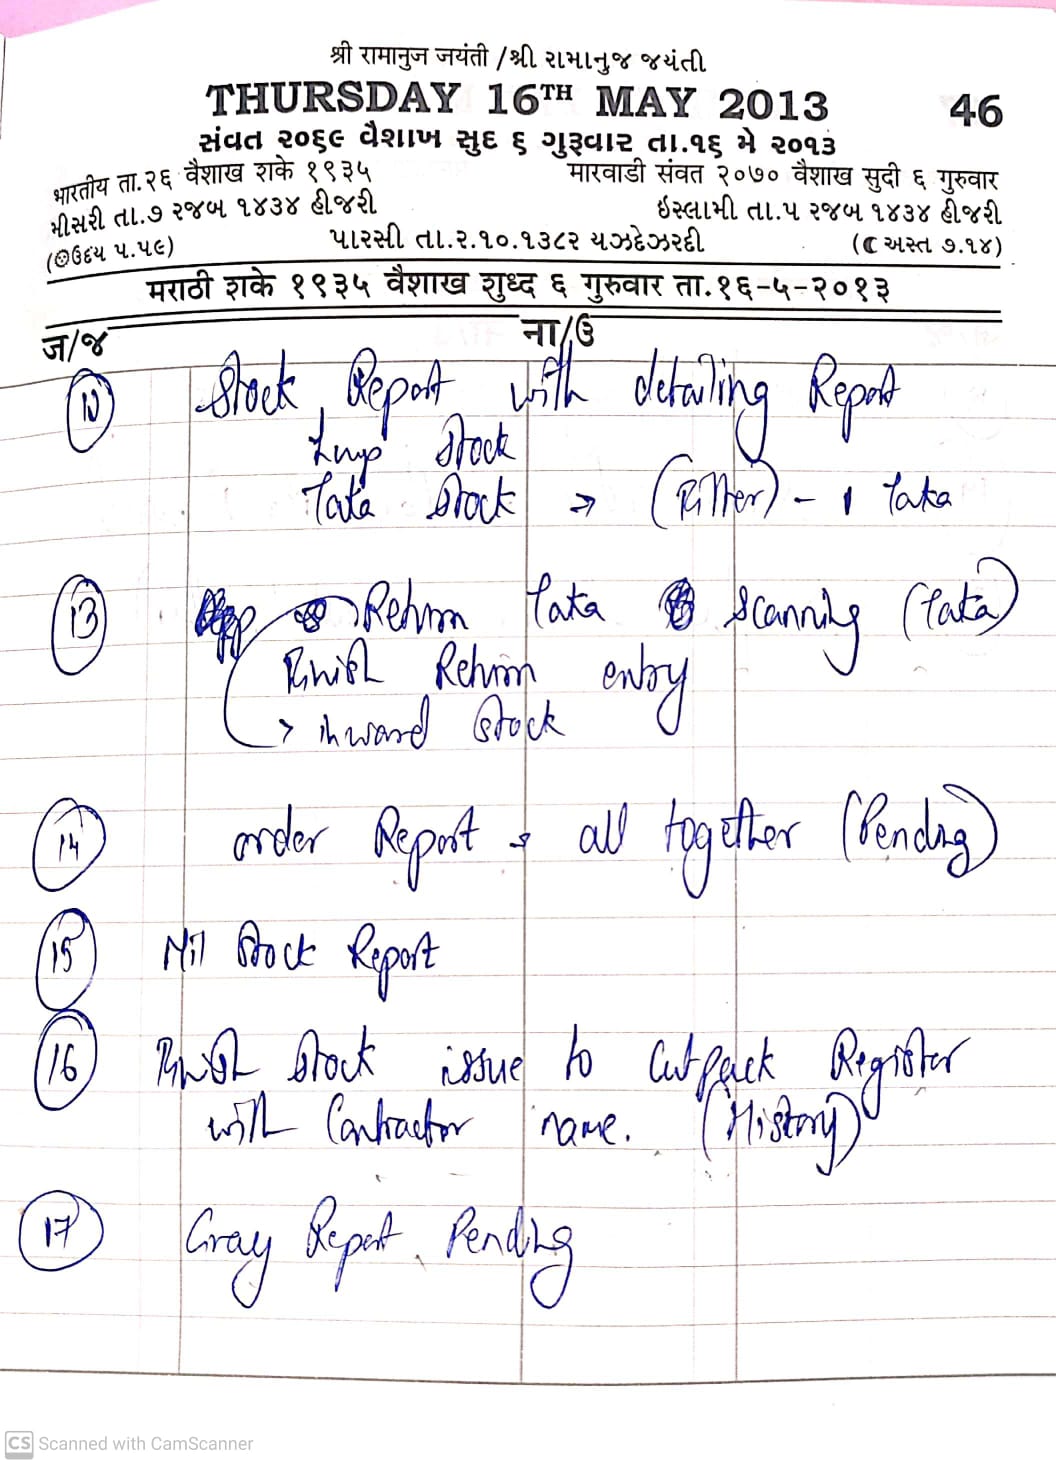 श्री रामानुज जयंती / શ્રી રામાનુજ જયંતી
THURSDAY 16TH MAY 2013 46
સંવત ૨૦૬૯ વૈશાખ સુદ ૬ ગુરૂવાર તા.૧૬ મે ૨૦૧૩
भारतीय ता.२६ वैशाख शके १९३५ मारवाडी संवत २०७० वैशाख सुदी ६ गुरुवार
મીસરી તા.૭ રજબ ૧૪૩૪ હીજરી ઇસ્લામી તા.૫ રજબ ૧૪૩૪ હીજરી
(ઉદય ૫.૫૯) પારસી તા.૨.૧૦.૧૩૮૨ યઝદેઝરદી (અસ્ત ૭.૧૪)
मराठी शके १९३५ वैशाख शुध्द ६ गुरुवार ता.१६-५-२०१३
ज/જ ना/ઉ
Stock Report with detailing Report
Lump Stock
Taka Stock → (Filter) - 1 Taka
13 Return Taka Scanning (Taka)
Finish Return entry
> inward Stock
14 order Report all together (Pending)
15 Mil Stock Report
16 Finish Stock issue to Cutpack Register
with Contractor name. (History)
17 Gray Report Pending
CS Scanned with CamScanner